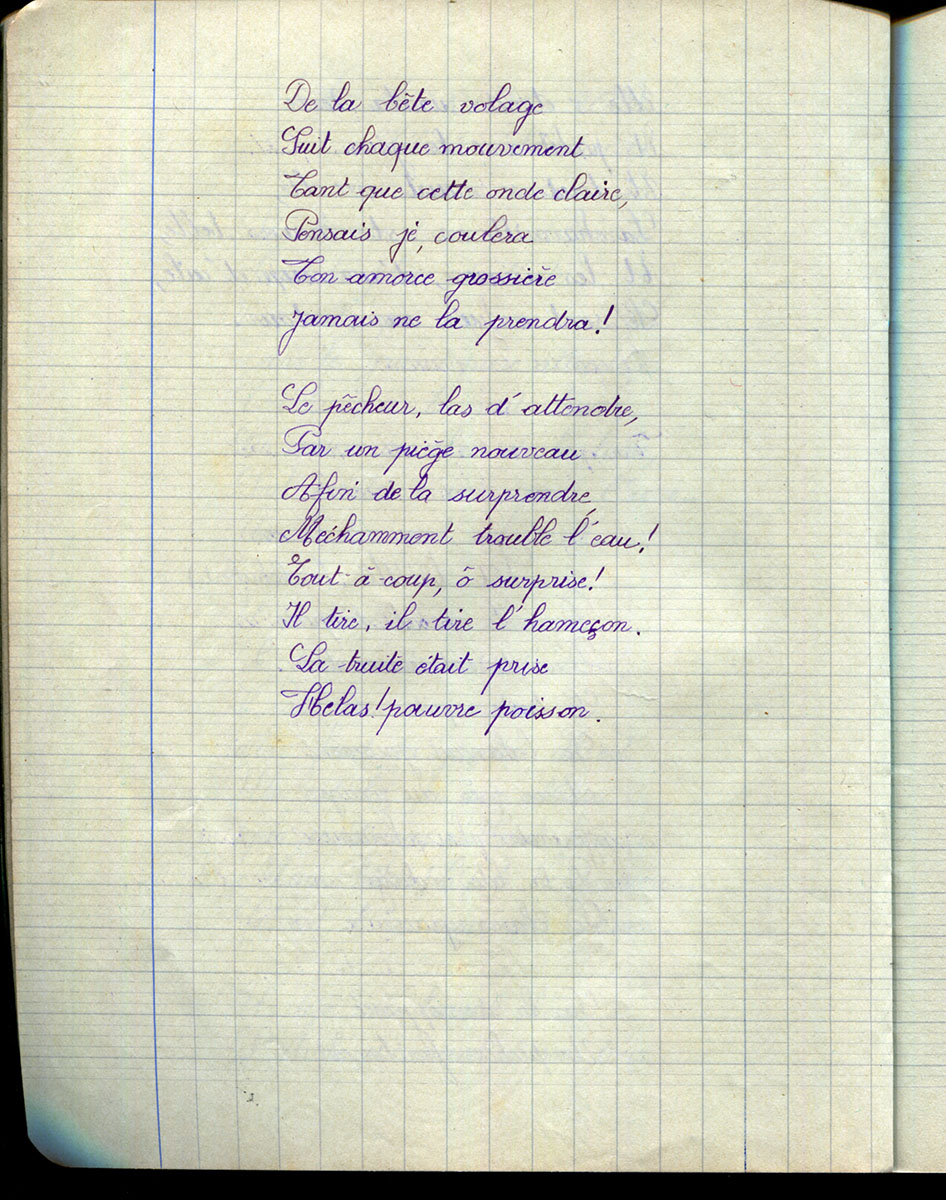 De la bête volage
Suit chaque mouvement
Tant que cette onde claire,
Pensais je, coulera
Ton amorce grossière
Jamais ne la prendra!
Le pêcheur, las d'attendre,
Par un piège nouveau
Afin de la surprendre,
Méchamment trouble l'eau!
Tout-à-coup, ô surprise!
Il tire, il tire l'hameçon.
La truite était prise
Helas! pauvre poisson.